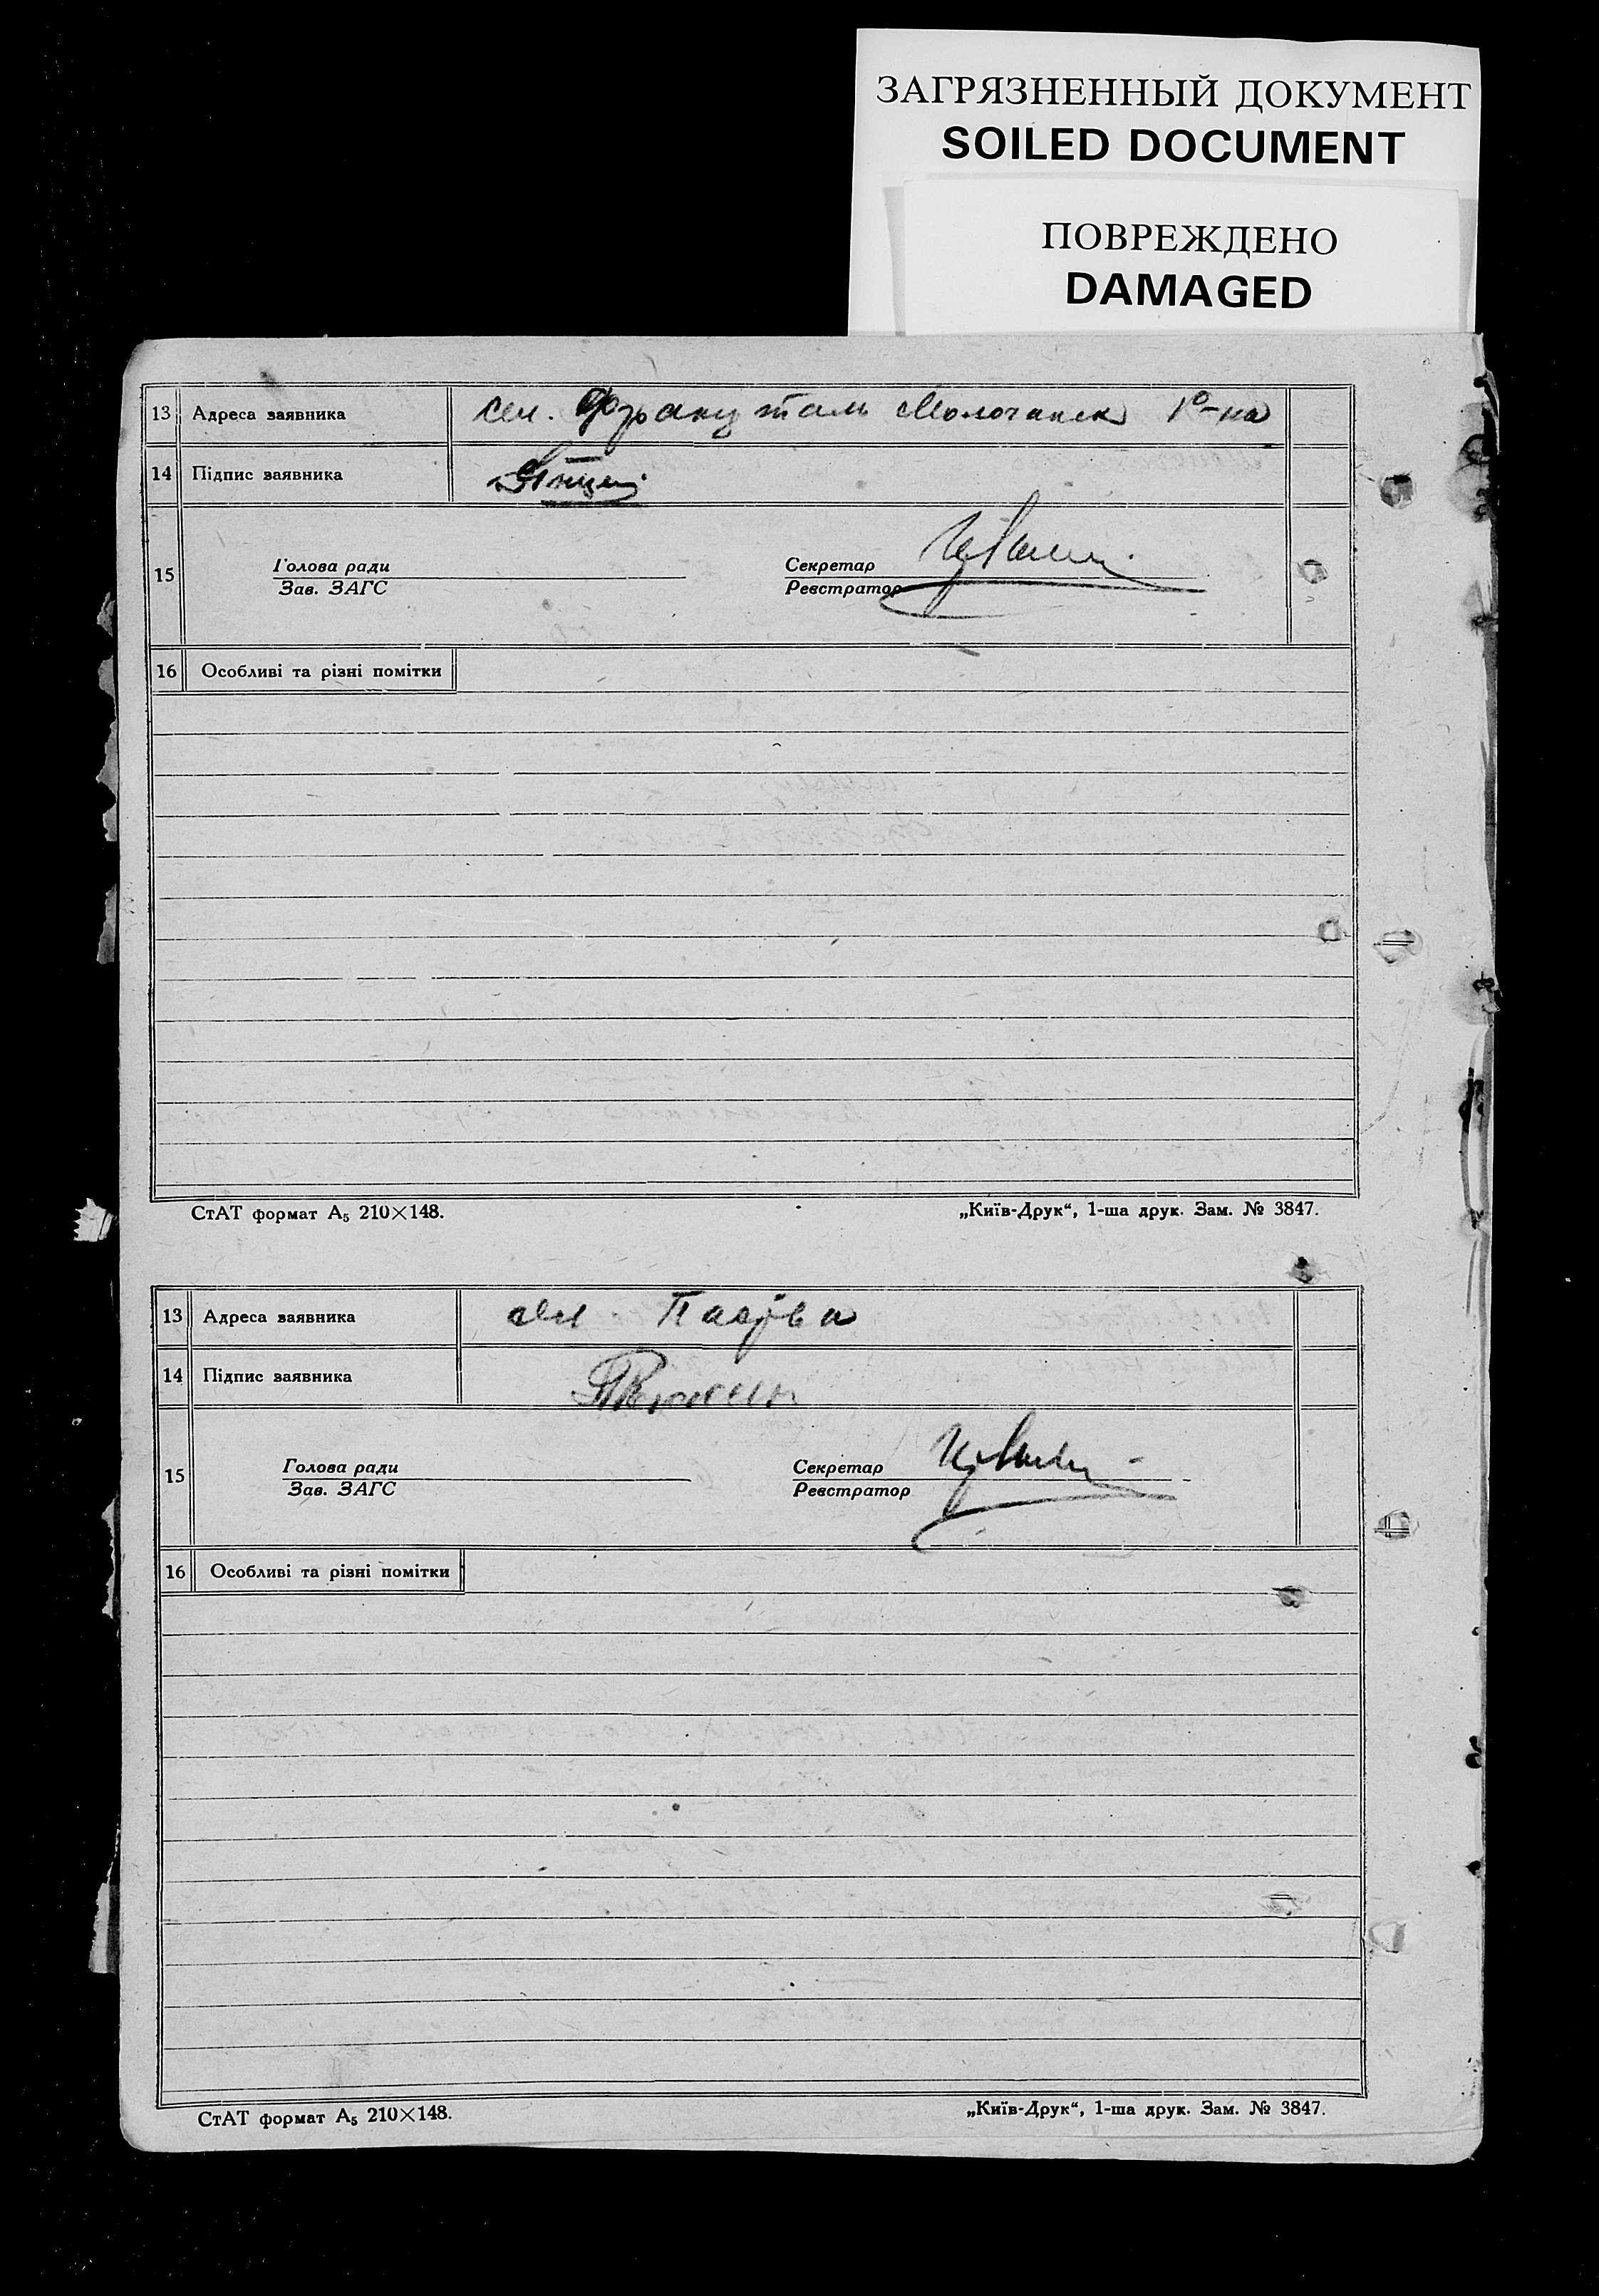 ЗАГРЯЗНЕННЫЙ ДОКУМЕНТ
SOILED DOCUMENT
ПОВРЕЖДЕНО
DAMAGED
13 Адреса заявника сел. Францталь Молочанск р-на
14 Підпис заявника
15 Голова ради Секретар
Зав. ЗАГС Реєстратор
16 Особливі та різні помітки
СтАТ формат А₅ 210×148. „Київ-Друк“, 1-ша друк. Зам. № 3847.
13 Адреса заявника сел.
14 Підпис заявника
15 Голова ради Секретар
Зав. ЗАГС Реєстратор
16 Особливі та різні помітки
СтАТ формат А₅ 210×148. „Київ-Друк“, 1-ша друк. Зам. № 3847.